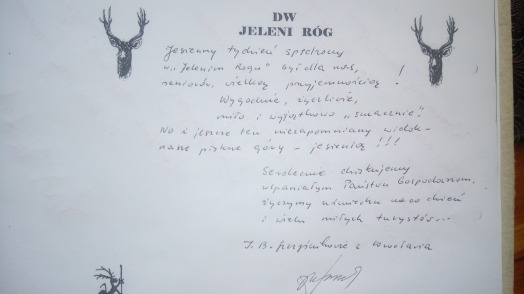 DW
JELENI RÓG
Jesienny tydzień spędzony
w „Jelenim Rogu" był dla nas,
seniorów, wielką przyjemnością!
Wygodnie, życzliwie,
miło i wyjątkowo „smacznie".
No i jeszcze ten niezapomniany widok –
nasze piękne góry – jesienią!!!
Serdecznie dziękujemy
wspaniałym Państwu Gospodarzom,
życzymy uśmiechu na co dzień
i wielu miłych turystów...
J. B. z